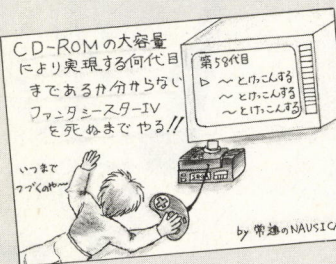 CD-ROMの大容量
により実現する何代目
まであるか分からない
ファンタシースターIV
を死ぬまでやる!!
第58代目
▷ 〜とけっこんする
〜とけっこんする
〜とけっこんする
いつまで
つづくのや〜
by 常連のNAUSICA